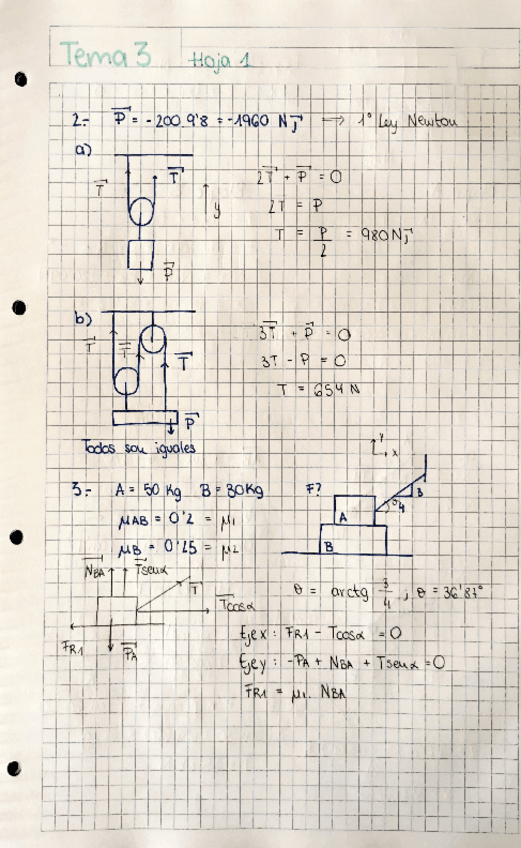 Tema 3 Hoja 1
2.- P = -200.9'8 = -1960 N j → 1º Ley Newton
a)
T T y P
2T + P = 0
2T = P
T = P/2 = 980 N j
b)
T T T P
3T + P = 0
3T - P = 0
T = 654 N
Todos son iguales
3.- A = 50 Kg B = 30 Kg F?
μAB = 0'2 = μ1
μB = 0'25 = μ2
y x
A B θ 4 3
NBA Tsenα T Tcosα
FR1 PA
θ = arctg 3/4 ; θ = 36'87º
Eje x : FR1 - Tcosα = 0
Eje y : -PA + NBA + Tsenα = 0
FR1 = μ1. NBA